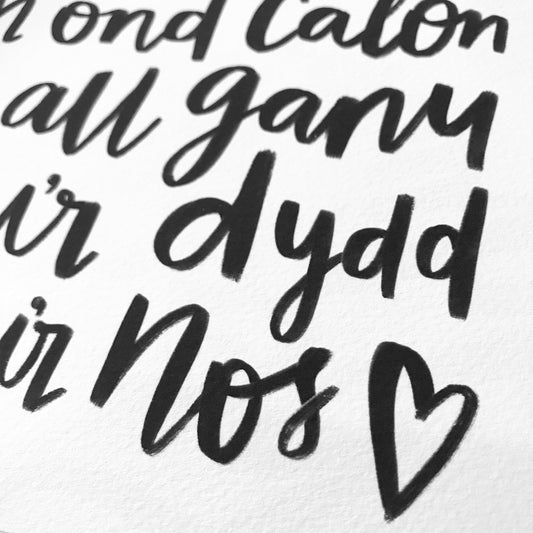 ond Calon
all ganu
i'r dydd
i'r Nos